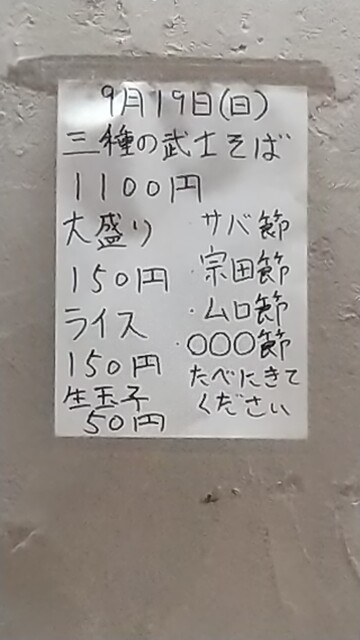 9月19日(日)
三種の武士そば
1100円
大盛り
150円
ライス
150円
生玉子
50円
・サバ節
・宗田節
・ムロ節
・○○○節
たべにきて
ください